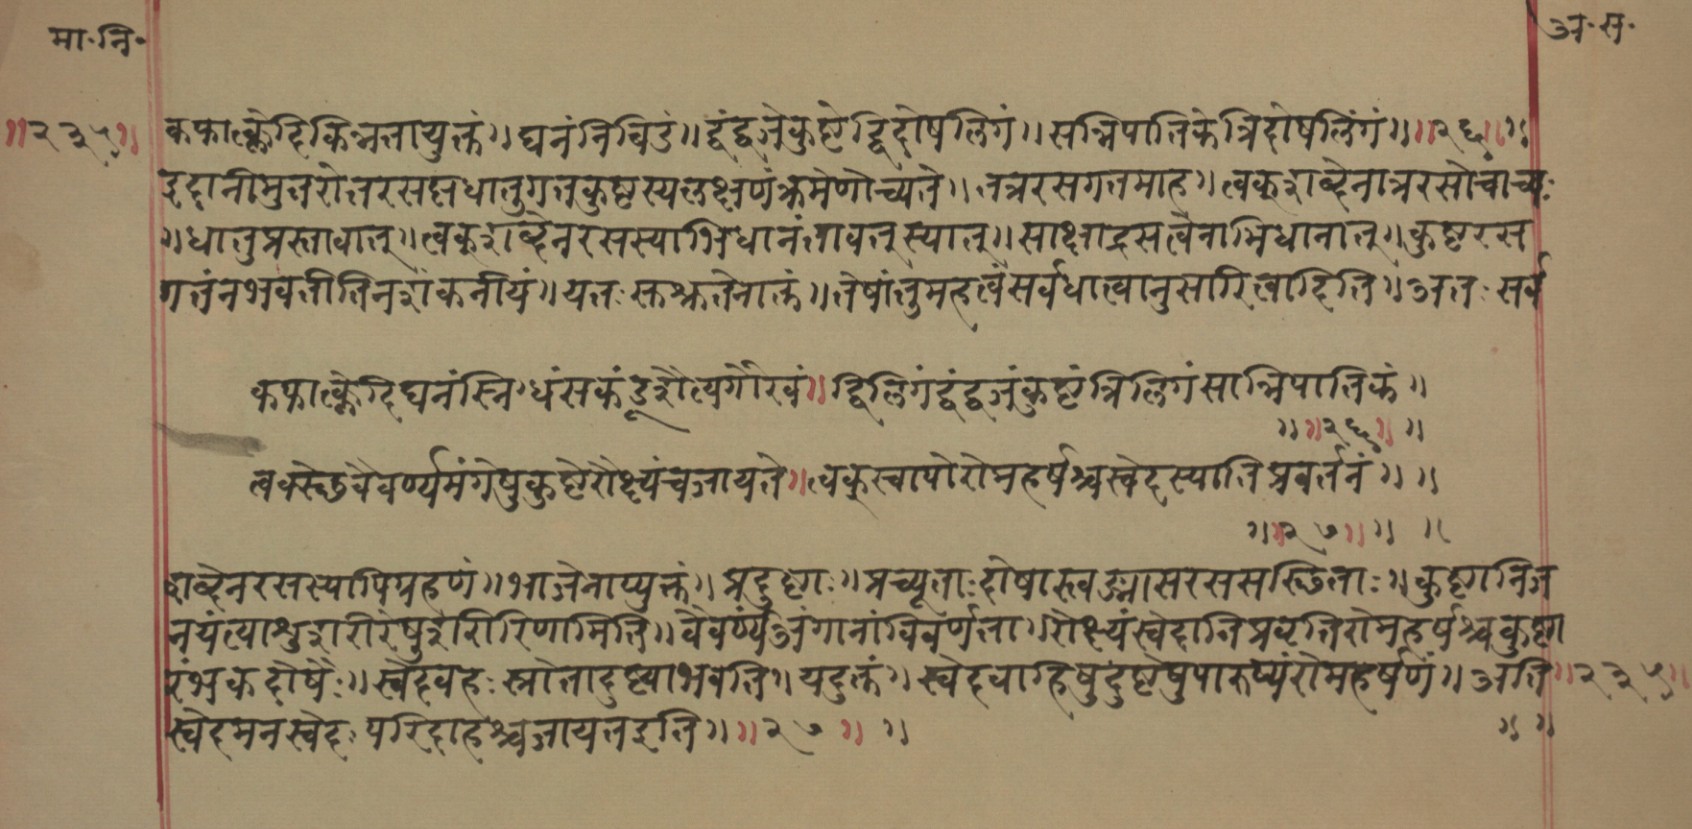 मा॰ नि॰
अ॰ स॰
॥२३५॥
कफात्क्लेदि क्लिन्नतायुक्तं॥ घनंनिविडं॥ द्वंद्वजेकुष्टेद्विदोषलिगं॥ सन्निपातिकेत्रिदोषलिंगं॥ ॥२६॥ ॥
इदानीमुतरोतरसप्तधातुगतकुष्टस्यलक्षणंक्रमेणोच्यते॥ तत्ररसगतमाह॥ त्वक्शब्देनात्ररसोवाच्यः
॥धातुप्रस्तावात्॥ त्वक्शब्देनरसस्याभिधानंतावत्स्यात्॥ साक्षाद्रसत्वेनाभिधानात्॥ कुष्टरस
गतंनभवतीतिनशंकनीयं॥ यतः सुश्रुतेनोक्तं॥ तेषांतुमहत्वंसर्वधात्वानुसारित्वादिति॥ अतः सर्व
कफात्क्लेदिघनंस्निग्धंसकंडूशैत्यगौरवं॥ द्विलिगंद्वंद्वजंकुष्टंत्रिलिगंसान्निपातिकं॥
॥ ॥२६॥ ॥
त्वक्स्थेवैवर्ण्यमंगेषुकुष्टेरौक्ष्यंचजायते॥ त्वक्स्वापोरोमहर्षश्चस्वेदस्यातिप्रवर्तनं॥ ॥
॥॥२७॥॥ ॥
शब्देनरसस्यापिग्रहणं॥ भोजेनाप्युक्तं॥ प्रदुष्टाः॥ प्रच्युताः दोषास्त्वङ्मासरससंस्थिताः॥ कुष्टानिज
नयंत्याशुशरीरेषुशरीरिणामिति॥ वैवर्ण्यंअंगानांविवर्णता॥ रौक्ष्यंस्वेदातिप्रवृतिरोमहर्षश्चकुष्टा
रंभकदोषैः॥ स्वेदवहः स्रोतोदुष्ट्याभवति॥ यदुक्तं॥ स्वेदवाहिषुदुष्टेषुपारुष्यंरोमहर्षणं॥ अति
॥२३५॥
स्वेदमनस्वेदः परिदाहश्चजायतइति॥ ॥२७॥ ॥ ॥ ॥